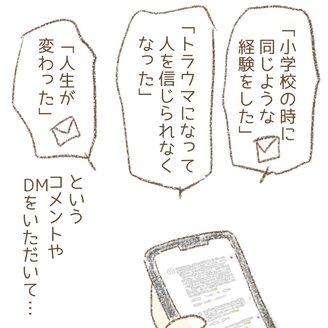 「小学校の時に
同じような
経験をした」
「トラウマになって
人を信じられなく
なった」
「人生が
変わった」
という
コメントや
DMをいただいて…